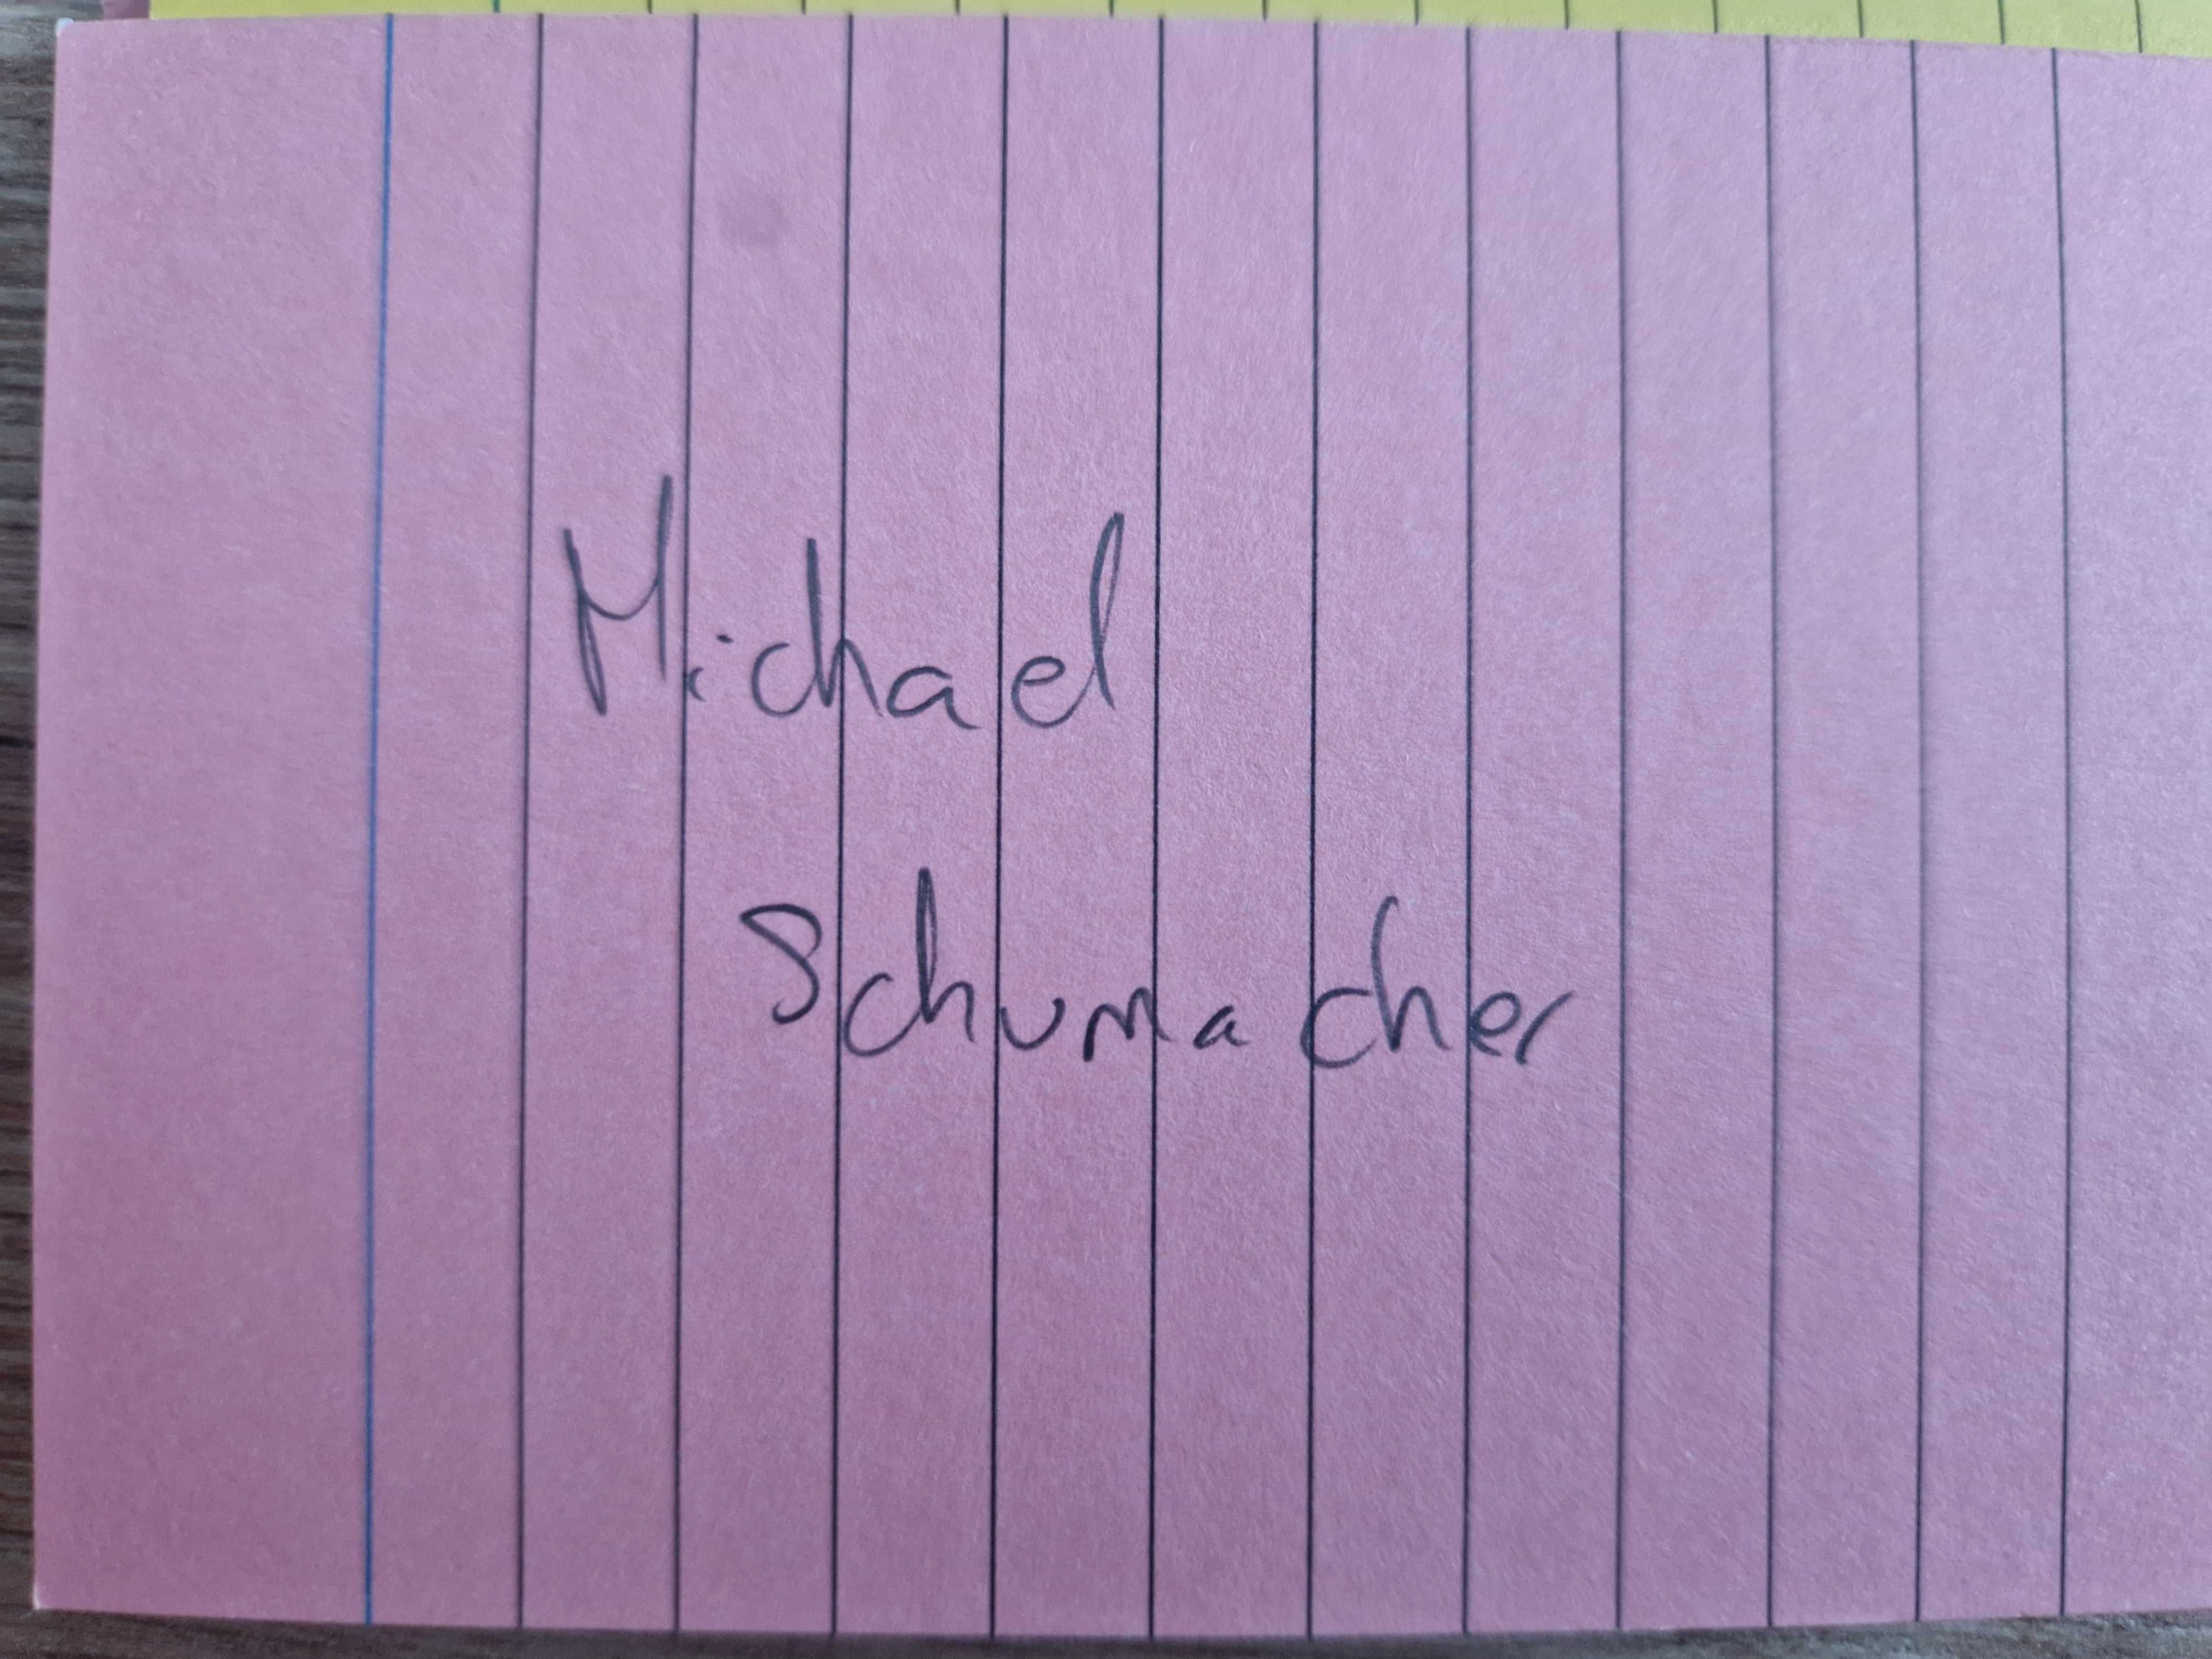 Michael
Schumacher